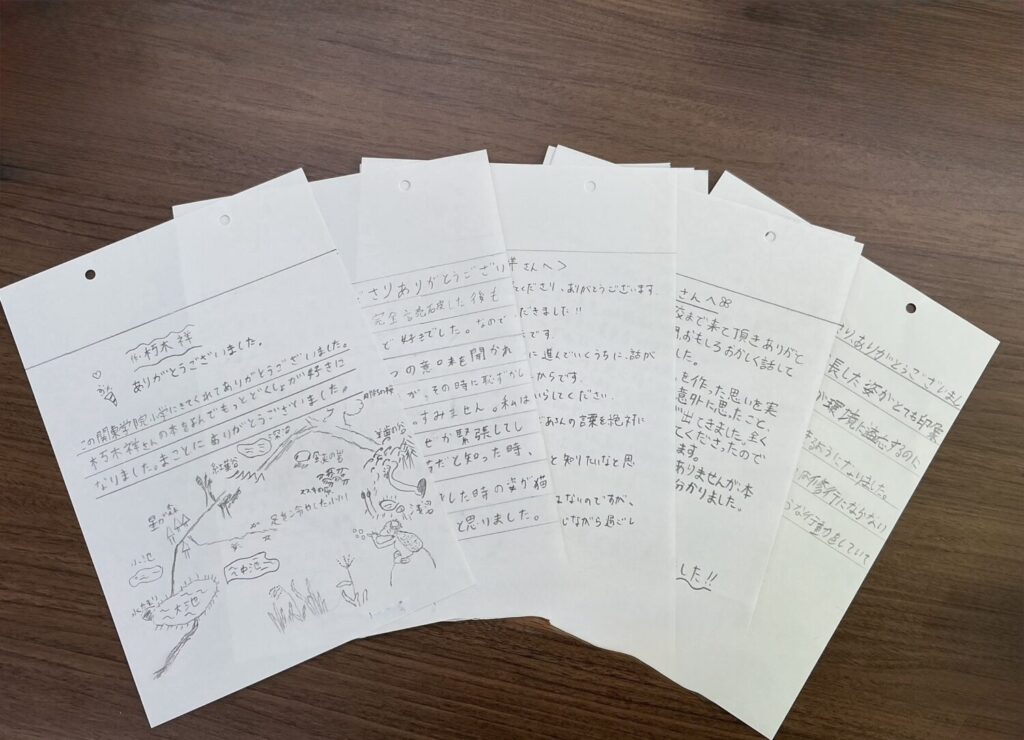 作.朽木 祥
ありがとうございました。
この関東学院小学にきてくれてありがとうございました。
朽木祥さんの本をよんでもっとどくしょが好きに
なりました。まことにありがとうございました。
紅葉谷
深沼
星が森
足をひやしたい!!!
小池
中池
大池
浅沼
さりありがとうござい
完全に
後も
で好きでした。なので
つの意口味を聞かれ
が、その時に恥ずかし
すみません。私は
せか緊張してし
だと知った時、
した時の姿が猫
と思りました。
さんへ>
くださり、ありがとうございます。
だきました!!
です。
に進んでいくうちに、話が
からです。
いらしてください。
さんの言葉を絶対に
と知りたいなと思
ないのですが、
じながら過ごし
さんへ
校まで来て頂きありがと
おもしろおかしく話して
した。
を作った思いを実
意外に思ったこと、
が出てきました。全く
てくださったので
ます。
ありませんが、本
分かりました。
した!!
り、ありがとうございまし
長した姿がとても印象
が環境に適応するのに
ようになりました。
修行にならない
な行動をしていて